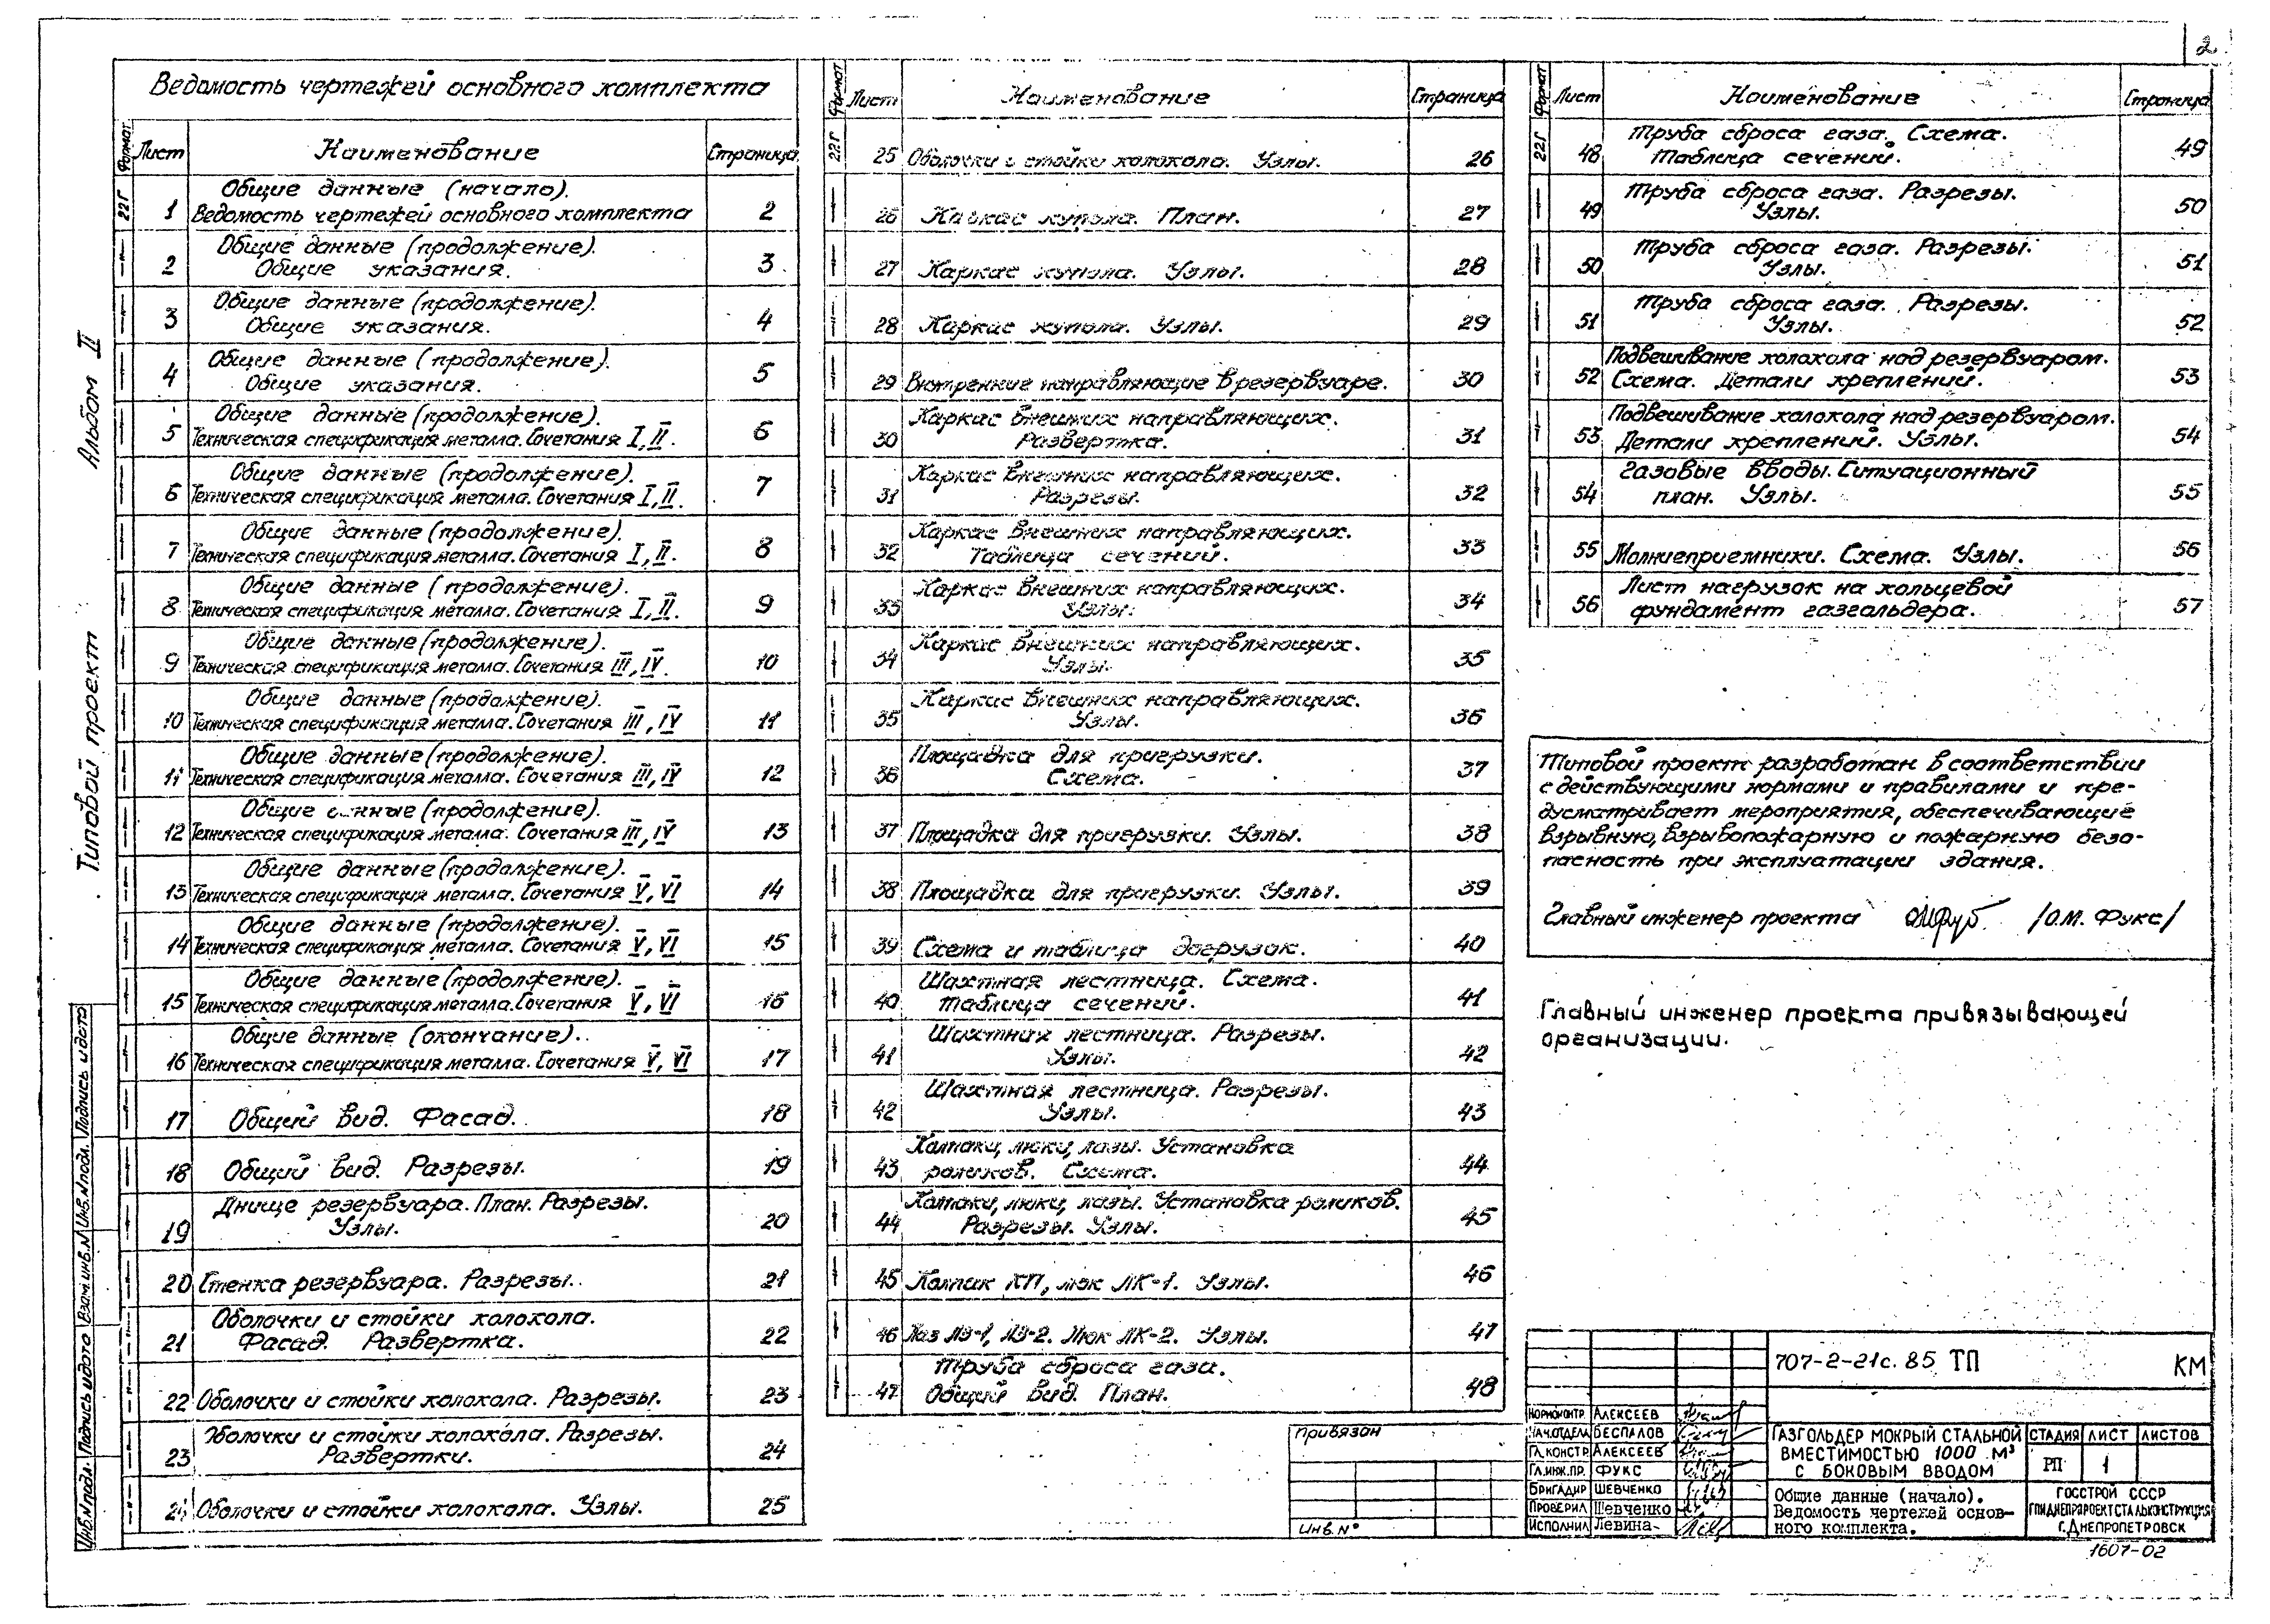 2
Альбом II
Типовой проект
Ведомость чертежей основного комплекта
Формат Лист Наименование Страница
22Г 1 Общие данные (начало). Ведомость чертежей основного комплекта 2
2 Общие данные (продолжение). Общие указания. 3
3 Общие данные (продолжение). Общие указания. 4
4 Общие данные (продолжение). Общие указания. 5
5 Общие данные (продолжение). Техническая спецификация металла. Сочетания I, II. 6
6 Общие данные (продолжение). Техническая спецификация металла. Сочетания I, II. 7
7 Общие данные (продолжение). Техническая спецификация металла. Сочетания I, II. 8
8 Общие данные (продолжение). Техническая спецификация металла. Сочетания I, II. 9
9 Общие данные (продолжение). Техническая спецификация металла. Сочетания III, IV. 10
10 Общие данные (продолжение). Техническая спецификация металла. Сочетания III, IV 11
11 Общие данные (продолжение). Техническая спецификация металла. Сочетания III, IV 12
12 Общие данные (продолжение). Техническая спецификация металла. Сочетания III, IV 13
13 Общие данные (продолжение). Техническая спецификация металла. Сочетания V, VI 14
14 Общие данные (продолжение). Техническая спецификация металла. Сочетания V, VI 15
15 Общие данные (продолжение). Техническая спецификация металла. Сочетания V, VI 16
16 Общие данные (окончание). Техническая спецификация металла. Сочетания V, VI 17
17 Общий вид. Фасад. 18
18 Общий вид. Разрезы. 19
19 Днище резервуара. План. Разрезы. Узлы. 20
20 Стенка резервуара. Разрезы. 21
21 Оболочки и стойки колокола. Фасад. Развертка. 22
22 Оболочки и стойки колокола. Разрезы. 23
23 Оболочки и стойки колокола. Разрезы. Развертки. 24
24 Оболочки и стойки колокола. Узлы. 25
Формат Лист Наименование Страница
22Г 25 Оболочки и стойки колокола. Узлы. 26
26 Каркас купола. План. 27
27 Каркас купола. Узлы. 28
28 Каркас купола. Узлы. 29
29 Внутренние направляющие в резервуаре. 30
30 Каркас внешних направляющих. Развертка. 31
31 Каркас внешних направляющих. Разрезы. 32
32 Каркас внешних направляющих. Таблица сечений. 33
33 Каркас внешних направляющих. Узлы. 34
34 Каркас внешних направляющих. Узлы. 35
35 Каркас внешних направляющих. Узлы. 36
36 Площадка для пригрузки. Схема. 37
37 Площадка для пригрузки. Узлы. 38
38 Площадка для пригрузки. Узлы. 39
39 Схема и таблица догрузок. 40
40 Шахтная лестница. Схема. Таблица сечений. 41
41 Шахтная лестница. Разрезы. Узлы. 42
42 Шахтная лестница. Разрезы. Узлы. 43
43 Колпаки, люки, лазы. Установка роликов. Схема. 44
44 Колпаки, люки, лазы. Установка роликов. Разрезы. Узлы. 45
45 Колпак КП, люк ЛК-1. Узлы. 46
46 Лаз ЛЗ-1, ЛЗ-2. Люк ЛК-2. Узлы. 47
47 Труба сброса газа. Общий вид. План. 48
Формат Лист Наименование Страница
22Г 48 Труба сброса газа. Схема. Таблица сечений. 49
49 Труба сброса газа. Разрезы. Узлы. 50
50 Труба сброса газа. Разрезы. Узлы. 51
51 Труба сброса газа. Разрезы. Узлы. 52
52 Подвешивание колокола над резервуаром. Схема. Детали креплений. 53
53 Подвешивание колокола над резервуаром. Детали креплений. Узлы. 54
54 Газовые вводы. Ситуационный план. Узлы. 55
55 Молниеприемники. Схема. Узлы. 56
56 Лист нагрузок на кольцевой фундамент газгольдера. 57
Типовой проект разработан в соответствии
с действующими нормами и правилами и пре-
дусматривает мероприятия, обеспечивающие
взрывную, взрывопожарную и пожарную безо-
пасность при эксплуатации здания.
Главный инженер проекта /О.М. Фукс/
Главный инженер проекта привязывающей
организации.
Привязан
Инв. №
707-2-21с.85 ТП КМ
Нормоконтр. Алексеев
Нач.отдела Беспалов
Гл.констр. Алексеев
Гл.инж.пр. Фукс
Бригадир Шевченко
Проверил Шевченко
Исполнил Левина
ГАЗГОЛЬДЕР МОКРЫЙ СТАЛЬНОЙ
ВМЕСТИМОСТЬЮ 1000 М³
С БОКОВЫМ ВВОДОМ
СТАДИЯ ЛИСТ ЛИСТОВ
РП 1
Общие данные (начало).
Ведомость чертежей основ-
ного комплекта.
ГОССТРОЙ СССР
ГПИ ДНЕПРПРОЕКТСТАЛЬКОНСТРУКЦИЯ
Г. ДНЕПРОПЕТРОВСК
1607-02
Инв.№подл. Подпись и дата Взам.инв.№ Инв.№подл. Подпись и дата